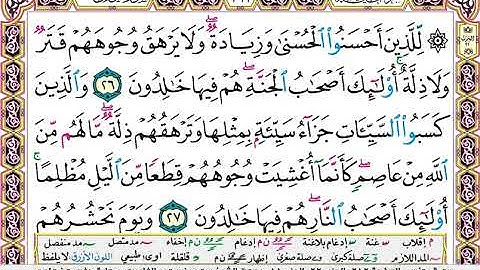 ۞ لِّلَّذِينَ أَحْسَنُوا۟ ٱلْحُسْنَىٰ وَزِيَادَةٌ ۖ وَلَا يَرْهَقُ وُجُوهَهُمْ قَتَرٌ
وَلَا ذِلَّةٌ ۚ أُو۟لَٰٓئِكَ أَصْحَٰبُ ٱلْجَنَّةِ ۖ هُمْ فِيهَا خَٰلِدُونَ ٢٦ وَٱلَّذِينَ
كَسَبُوا۟ ٱلسَّيِّـَٔاتِ جَزَآءُ سَيِّئَةٍۭ بِمِثْلِهَا وَتَرْهَقُهُمْ ذِلَّةٌ ۖ مَّا لَهُم مِّنَ
ٱللَّهِ مِنْ عَاصِمٍ ۖ كَأَنَّمَآ أُغْشِيَتْ وُجُوهُهُمْ قِطَعًا مِّنَ ٱلَّيْلِ مُظْلِمًا ۚ
أُو۟لَٰٓئِكَ أَصْحَٰبُ ٱلنَّارِ ۖ هُمْ فِيهَا خَٰلِدُونَ ٢٧ وَيَوْمَ نَحْشُرُهُمْ
م إقلاب غنة إدغام بلاغنة ن م إدغام إخفاء مد متصل مد منفصل
المد اللازم صلة كبرى وصلة صغرى إظهار قلقلة أوى طبيعي اللون الأزرق لا يلفظ